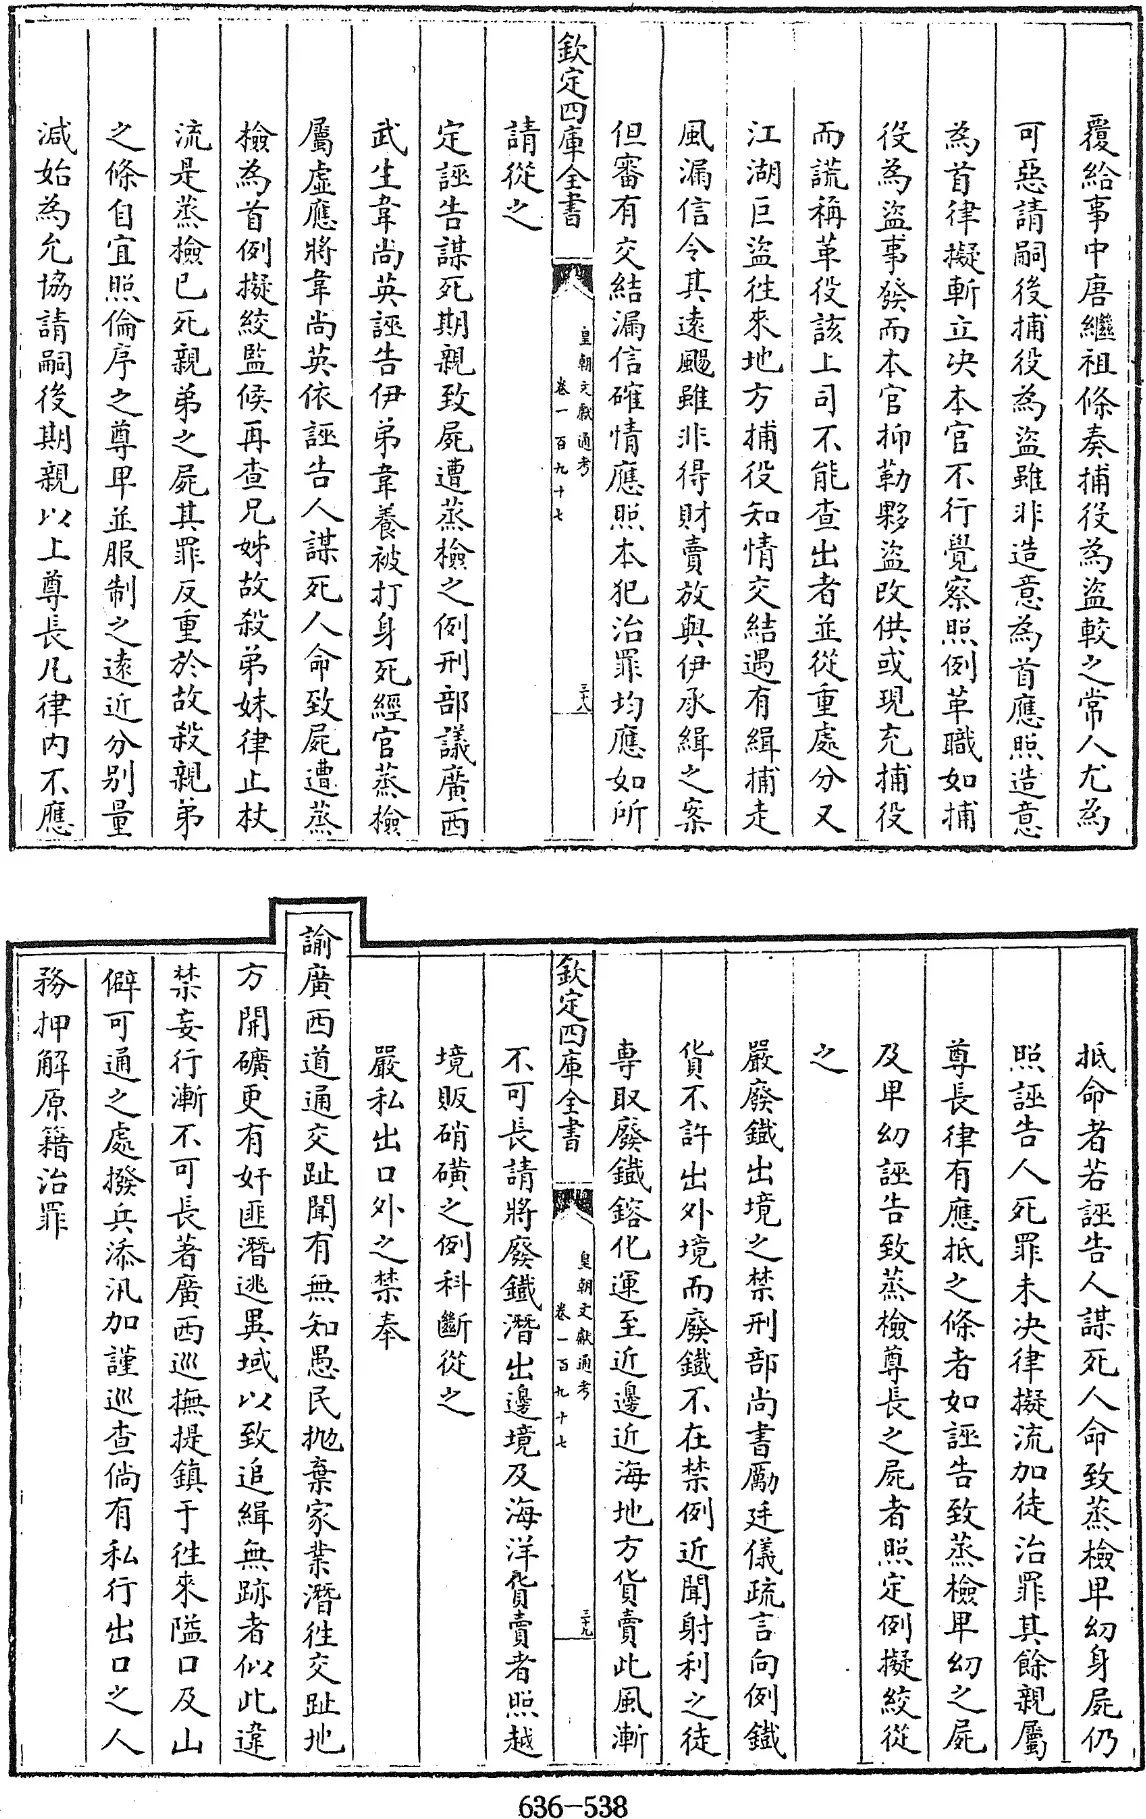 覆給事中唐繼祖條奏捕役為盜較之常人尤為
可惡請嗣後捕役為盜雖非造意為首應照造意
為首律擬斬立決本官不行覺察照例革職如捕
役為盜事發而本官抑勒夥盜改供或現充捕役
而謊稱革役該上司不能查出者並從重處分又
江湖巨盜徃來地方捕役知情交結遇有緝捕走
風漏信令其遠颺雖非得財賣放與伊承緝之案
但審有交結漏信確情應照本犯治罪均應如所
欽定四庫全書
皇朝文獻通考
卷一百九十七
三十八
請從之
定誣告謀死期親致屍遭蒸檢之例刑部議廣西
武生韋尚英誣告伊弟韋養被打身死經官蒸檢
屬虛應將韋尚英依誣告人謀死人命致屍遭蒸
檢為首例擬絞監候再查兄姊故殺弟妹律止杖
流是蒸檢已死親弟之屍其罪反重於故殺親弟
之條自宜照倫序之尊卑並服制之遠近分別量
減始為允協請嗣後期親以上尊長凡律內不應
抵命者若誣告人謀死人命致蒸檢卑幼身屍仍
照誣告人死罪未决律擬流加徒治罪其餘親屬
尊長律有應抵之條者如誣告致蒸檢卑幼之屍
及卑幼誣告致蒸檢尊長之屍者照定例擬絞從
之
嚴廢鐵出境之禁刑部尚書勵廷儀疏言向例鐵
貨不許出外境而廢鐵不在禁例近聞射利之徒
専取廢鐵鎔化運至近邊近海地方貨賣此風漸
欽定四庫全書
皇朝文獻通考
卷一百九十七
三十九
不可長請將廢鐵潛出邊境及海洋貨賣者照越
境販硝磺之例科斷從之
嚴私出口外之禁奉
諭廣西道通交趾聞有無知愚民抛棄家業潛徃交趾地
方開礦更有奸匪潛逃異域以致追緝無跡者似此違
禁妄行漸不可長著廣西巡撫提鎮于徃來隘口及山
僻可通之處撥兵添汛加謹巡查倘有私行出口之人
務押解原籍治罪
636-538